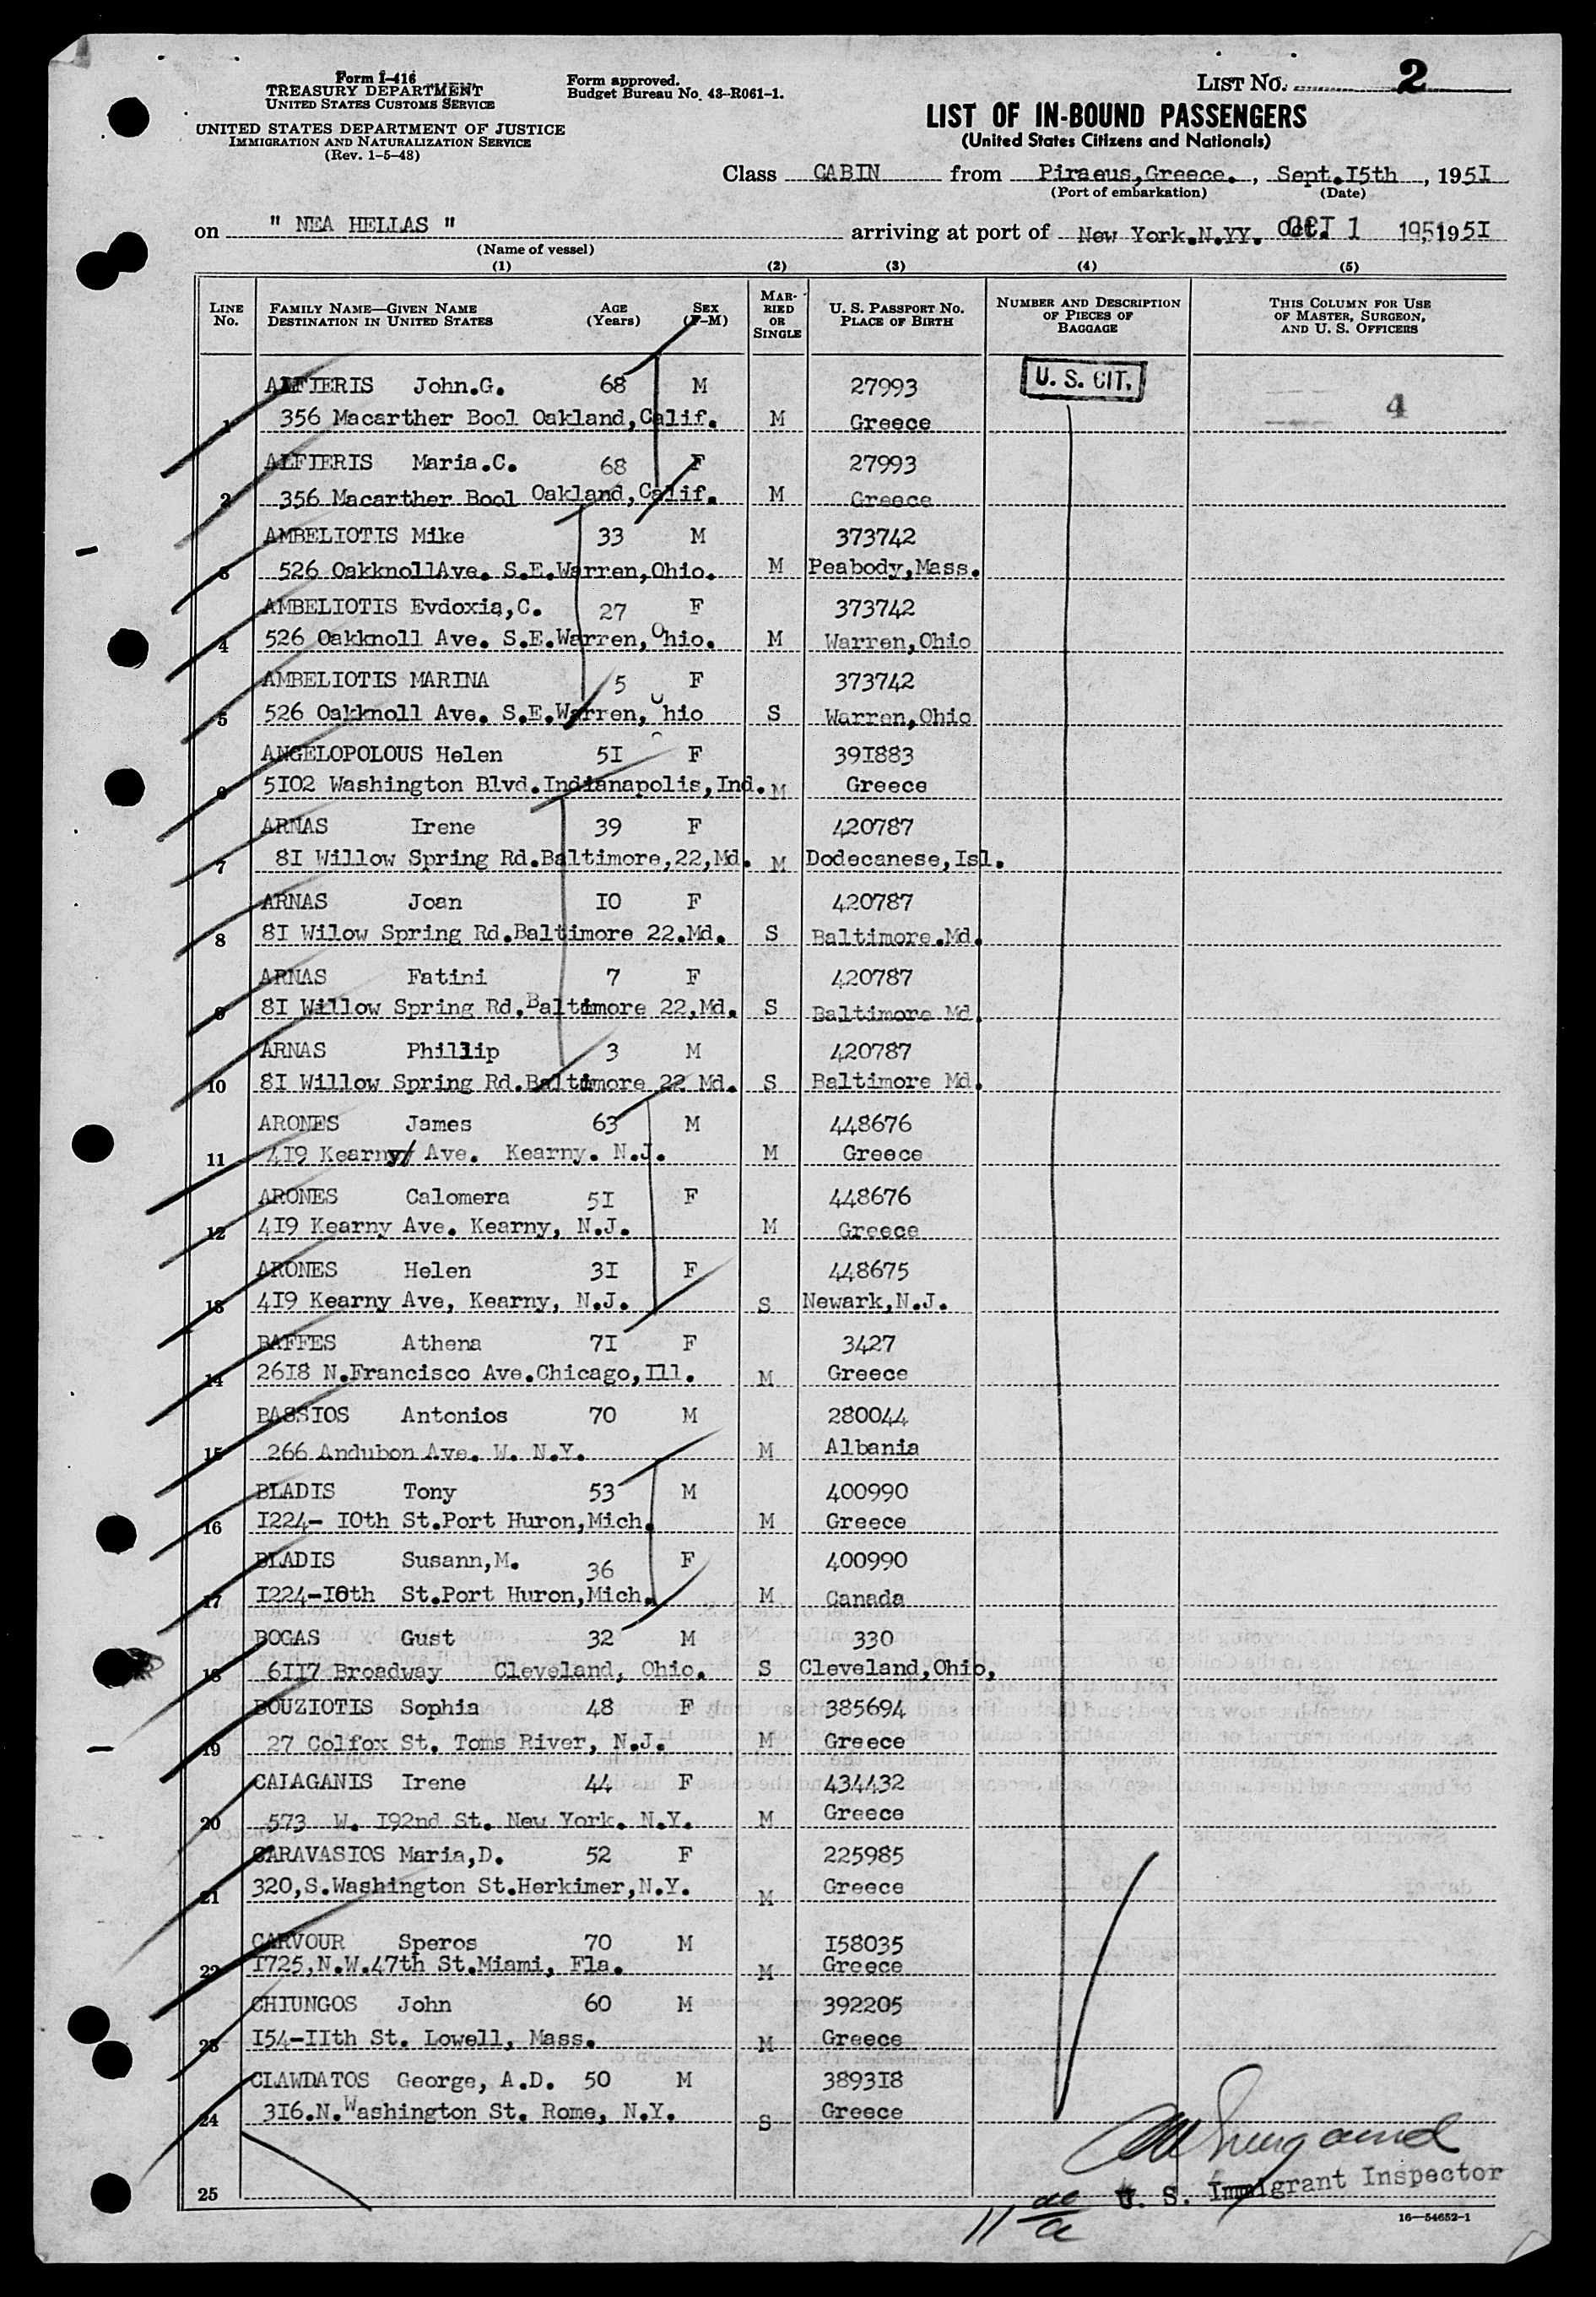 Form I-416
TREASURY DEPARTMENT
UNITED STATES CUSTOMS SERVICE
UNITED STATES DEPARTMENT OF JUSTICE
IMMIGRATION AND NATURALIZATION SERVICE
(Rev. 1-5-48)
Form approved.
Budget Bureau No. 43-R061-1.
LIST NO. 2
LIST OF IN-BOUND PASSENGERS
(United States Citizens and Nationals)
Class CABIN from Piraeus,Greece. , Sept.I5th , 195I
(Port of embarkation) (Date)
on " NEA HELLAS " arriving at port of New York.N.YY. Oct. OCT 1 1951 , 195I
(Name of vessel)
(1) (2) (3) (4) (5)
LINE No. FAMILY NAME—GIVEN NAME DESTINATION IN UNITED STATES AGE (Years) SEX (F-M) MARRIED OR SINGLE U. S. PASSPORT No. PLACE OF BIRTH NUMBER AND DESCRIPTION OF PIECES OF BAGGAGE THIS COLUMN FOR USE OF MASTER, SURGEON, AND U. S. OFFICERS
ALFIERIS John.G. 68 M 27993 U. S. CIT.
1 356 Macarther Bool Oakland,Calif. M Greece 4
ALFIERIS Maria.C. 68 F 27993
2 356 Macarther Bool Oakland,Calif. M Greece
AMBELIOTIS Mike 33 M 373742
3 526 OakknollAve. S.E.Warren,Ohio. M Peabody,Mass.
AMBELIOTIS Evdoxia,C. 27 F 373742
4 526 Oakknoll Ave. S.E.Warren,Ohio. M Warren,Ohio
AMBELIOTIS MARINA 5 F 373742
5 526 Oakknoll Ave. S.E.Warren,Ohio S Warren,Ohio
ANGELOPOLOUS Helen 5I F 39I883
6 5I02 Washington Blvd.Indianapolis,Ind. M Greece
ARNAS Irene 39 F 420787
7 8I Willow Spring Rd.Baltimore,22,Md. M Dodecanese,Isl.
ARNAS Joan I0 F 420787
8 8I Wilow Spring Rd.Baltimore 22.Md. S Baltimore.Md.
ARNAS Fatini 7 F 420787
9 8I Willow Spring Rd.Baltimore 22,Md. S Baltimore Md.
ARNAS Phillip 3 M 420787
10 8I Willow Spring Rd.Baltimore 22 Md. S Baltimore Md.
ARONES James 63 M 448676
11 4I9 Kearny/ Ave. Kearny. N.J. M Greece
ARONES Calomera 5I F 448676
12 4I9 Kearny Ave. Kearny, N.J. M Greece
ARONES Helen 3I F 448675
13 4I9 Kearny Ave, Kearny, N.J. S Newark,N.J.
BAFFES Athena 7I F 3427
14 26I8 N.Francisco Ave.Chicago,Ill. M Greece
BASSIOS Antonios 70 M 280044
15 266 Andubon Ave. W. N.Y. M Albania
BLADIS Tony 53 M 400990
16 I224- I0th St.Port Huron,Mich. M Greece
BLADIS Susann,M. 36 F 400990
17 I224-I0th St.Port Huron,Mich. M Canada
BOGAS Gust 32 M 330
18 6II7 Broadway Cleveland, Ohio. S Cleveland,Ohio,
BOUZIOTIS Sophia 48 F 385694
19 27 Colfox St. Toms River, N.J. M Greece
CALAGANIS Irene 44 F 434432
20 573 W. I92nd St. New York. N.Y. M Greece
CARAVASIOS Maria,D. 52 F 225985
21 320,S.Washington St.Herkimer,N.Y. M Greece
CARVOUR Speros 70 M I58035
22 I725,N.W.47th St.Miami, Fla. M Greece
CHIUNGOS John 60 M 392205
23 I54-IIth St. Lowell, Mass. M Greece
CLAWDATOS George, A.D. 50 M 3893I8
24 3I6.N.Washington St. Rome, N.Y. S Greece
25
U. S. Immigrant Inspector
11
16—54652-1